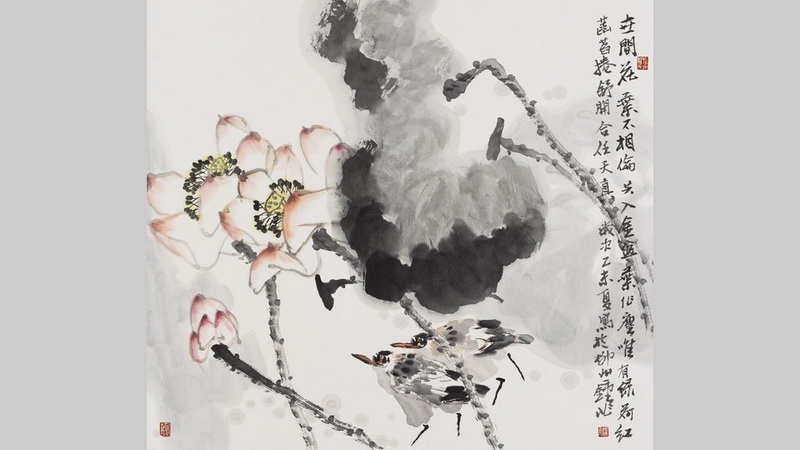 世間花葉不相倫花入金盆葉作塵唯有綠荷紅
菡萏捲舒開合任天真歲次乙未夏寫於柳州